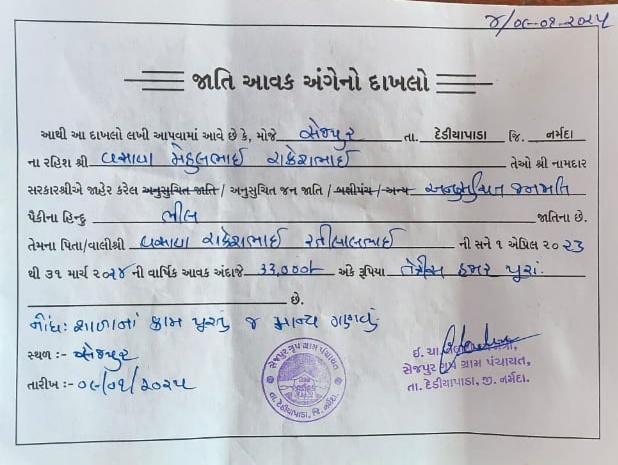 ૪/૦૯-૦૧-૨૦૨૫
જાતિ આવક અંગેનો દાખલો
આથી આ દાખલો લખી આપવામાં આવે છે કે, મોજે સેજપુર તા. દેડીયાપાડા જિ. નર્મદા
ના રહિશ શ્રી વસાવા મેહુલભાઈ રાકેશભાઈ તેઓ શ્રી નામદાર
સરકારશ્રીએ જાહેર કરેલ અનુસુચિત જાતિ / અનુસુચિત જન જાતિ / બક્ષીપંચ / અન્ય અનુસુચિત જનજાતિ
પૈકીના હિન્દુ ભીલ જાતિના છે.
તેમના પિતા/વાલીશ્રી વસાવા રાકેશભાઈ રતીલાલભાઈ ની સને ૧ એપ્રિલ ૨૦૨૩
થી ૩૧ માર્ચ ૨૦૨૪ ની વાર્ષિક આવક અંદાજે ૩૩,૦૦૦/- અંકે રૂપિયા તેત્રીસ હજાર પૂરાં.
છે.
નોંધ: શાળાનાં કામ પૂરતું જ માન્ય ગણવું
સ્થળ :- સેજપુર
તારીખ :- ૦૯/૦૧/૨૦૨૫
સેજપુર ગ્રુપ ગ્રામ પંચાયત
તા. દેડીયાપાડા, જિ. નર્મદા.
ઈ. ચા.
સેજપુર ગ્રુપ ગ્રામ પંચાયત,
તા. દેડીયાપાડા, જી. નર્મદા.